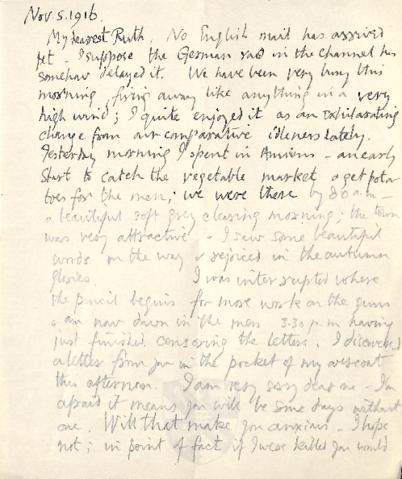 Nov. 5. 1916.
My dearest Ruth, No English mail has arrived
yet. I suppose the German raid in the channel has
somehow delayed it. We have been very busy this
morning, firing away like anything in a very
high wind; I quite enjoyed it as an exhilarating
change from our comparative idleness lately.
Yesterday morning I spent in Amiens - an early
start to catch the vegetable market & get pota
toes for the men; we were there by 8.0 a.m -
a beautiful soft grey clearing morning; the town
was very attractive - I saw some beautiful
woods on the way & rejoiced in the autumn
glories. I was interrupted where
the pencil begins for more work on the guns
& am now down in the mess 3.30 p.m having
just finished censoring the letters. I discovered
a letter from you in the pocket of my overcoat
this afternoon. I am very sorry dear one - I'm
afraid it means you will be some days without
one. Will that make you anxious - I hope
not; in point of fact if I were killed you would